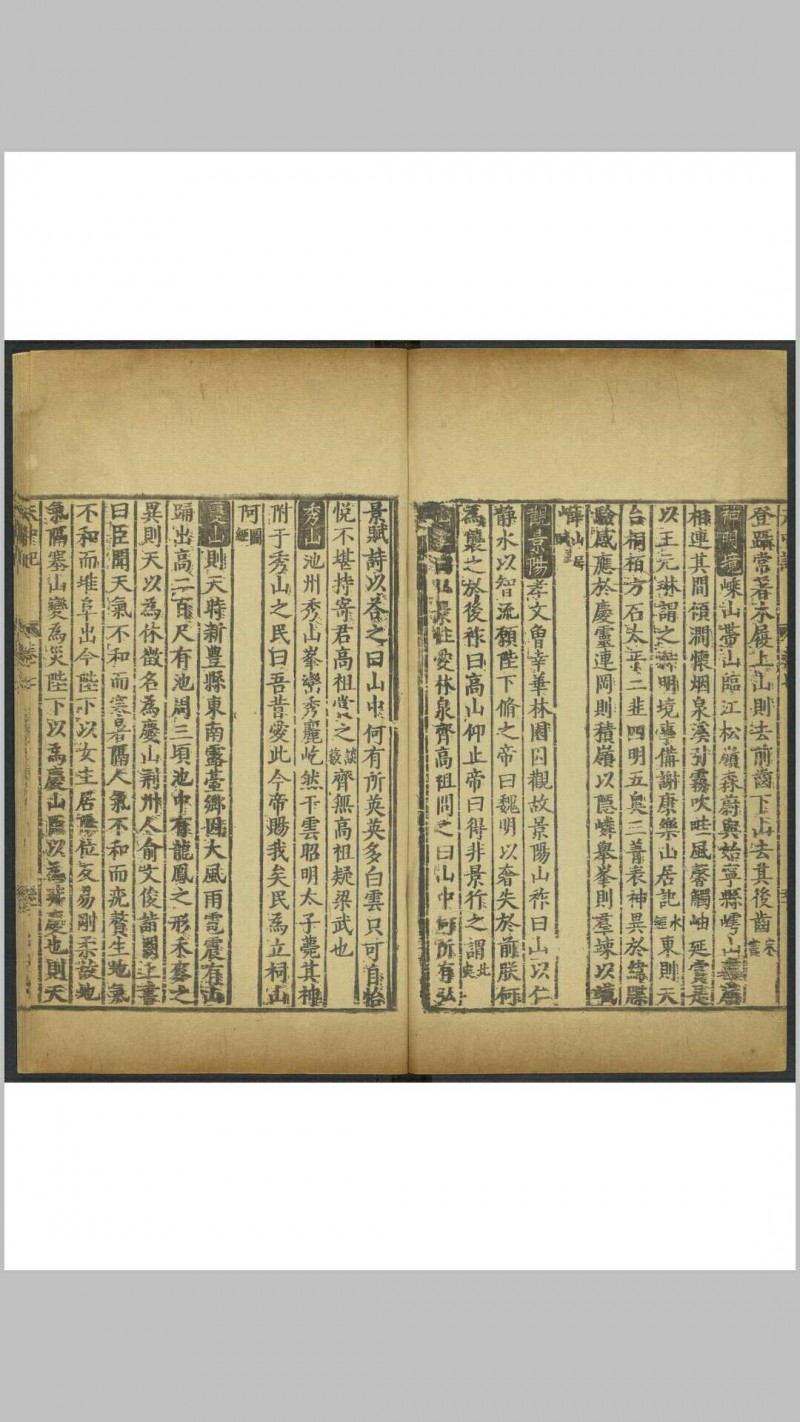 登躡常著木屐上山則去前齒下山去其後齒
神明境嵊山帶山臨江松嶺森蔚與始寧縣嶀山
相連其間傾澗懷烟泉溪引霧吹畦風馨觸岫延賞是
以王元琳謂之神明境事備謝康樂山居記水經東則天
台桐栢方石太平二韭四明五奥三菁表神異於緯牒
驗感應於慶靈連岡則積嶺以隱嶙舉峯則羣竦以
山居賦
觀景陽孝文曽幸華林園因觀故景陽山祚曰山以仁
静水以智流願陛下脩之帝曰魏明以奢失於前朕何
為襲之於後祚曰高山仰止帝曰得非景行之謂北史
弘景性愛林泉齊高祖問之曰山中何所有弘
景賦詩以荅之曰山中何有所英英多白雲只可自怡
悅不堪持寄君高祖賞之談藪齊無高祖疑梁武也
秀山池州秀山峯巒秀麗屹然干雲昭明太子薨其神
附于秀山之民曰吾昔愛此今帝賜我矣民為立祠山
阿圖經
慶山則天時新豊縣東南露臺郷因大風雨雹震有山
踊出高二百尺有池周三頃池中有龍鳳之形禾麥之
異則天以為休徵名為慶山荆州人俞文俊詣闕上書
曰臣聞天氣不和而寒暑隔人氣不和而疣贅生地氣
不和而堆阜出今陛下以女主居陽位反易剛柔故地
氣隔塞山變為災陛下以為慶山臣以為非慶也則天